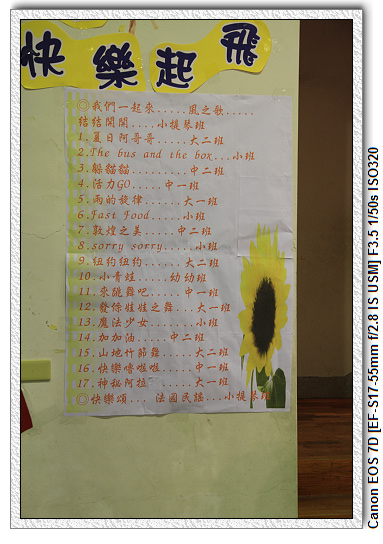 快樂起飛
◎我們一起來.....風之歌.....
結結開開....小提琴班
1.夏日阿哥哥.....大二班
2.The bus and the box...小班
3.躲貓貓.........中二班
4.活力GO.....中一班
5.雨的旋律......大一班
6.Fast Food.....小班
7.敦煌之美.....中二班
8.sorry sorry.....小班
9.紐約紐約......大二班
10.小青蛙.....幼幼班
11.來跳舞吧.....中一班
12.發條娃娃之舞...大一班
13.魔法少女.......小班
14.加加油.....中二班
15.山地竹節舞.....大二班
16.快樂嚕啦啦.....中一班
17.神秘阿拉 .....大一班
◎快樂頌... 法國民謠...小提琴班
Canon EOS 7D [EF-S17-55mm f/2.8 IS USM] F3.5 1/50s ISO320